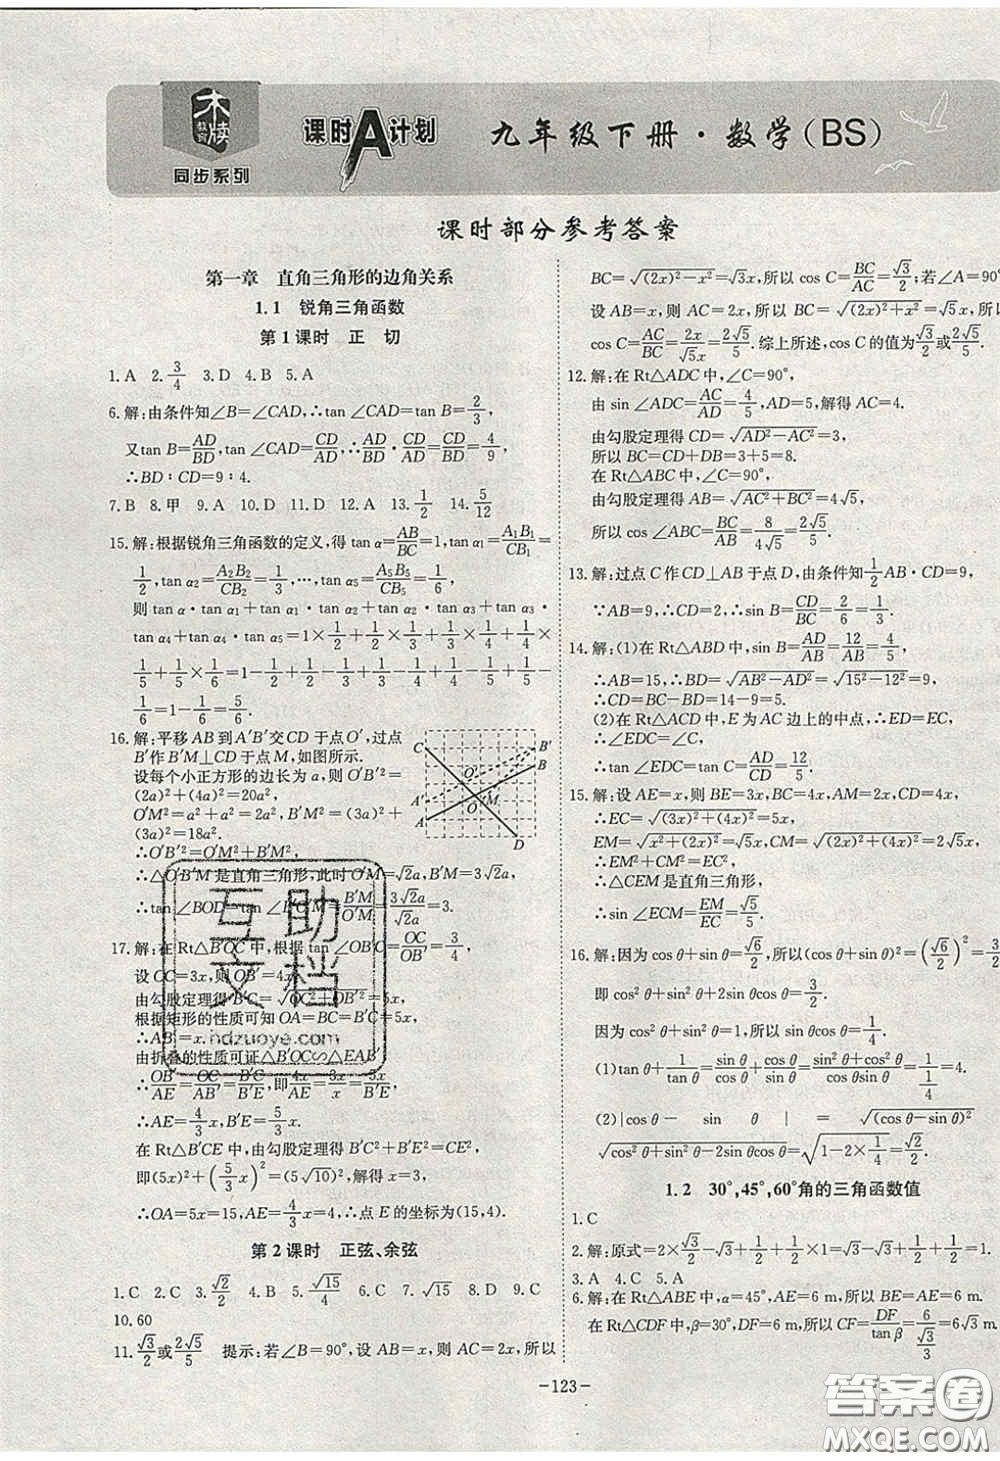 木牍
教育
同步系列
课时A计划 九年级下册·数学(BS)
课时部分参考答案
第一章 直角三角形的边角关系
1.1 锐角三角函数
第1课时 正 切
1.A 2.3/4 3.D 4.B 5.A
6.解:由条件知∠B=∠CAD,∴tan∠CAD=tan B=2/3,
又tan B=AD/BD,tan∠CAD=CD/AD,∴AD/BD·CD/AD=CD/BD=4/9,
∴BD∶CD=9∶4.
7.B 8.甲 9.A 10.D 11.D 12.A 13.1/2 14.5/12
15.解:根据锐角三角函数的定义,得tan α=AB/BC=1,tan α₁=A₁B₁/CB₁=
1/2,tan α₂=A₂B₂/CB₂=1/3,…,tan α₅=A₅B₅/CB₅=1/6,
则 tan α·tan α₁+tan α₁·tan α₂+tan α₂·tan α₃+tan α₃·
tan α₄+tan α₄·tan α₅=1×1/2+1/2×1/3+1/3×1/4+1/4×
1/5+1/5×1/6=1-1/2+1/2-1/3+1/3-1/4+1/4-1/5+1/5-
1/6=1-1/6=5/6.
16.解:平移AB到A′B′交CD于点O′,过点
B′作B′M⊥CD于点M,如图所示.
设每个小正方形的边长为a,则O′B′²=
(2a)²+(4a)²=20a²,
O′M²=a²+a²=2a²,B′M²=(3a)²+
(3a)²=18a².
∴O′B′²=O′M²+B′M²,
∴△O′B′M是直角三角形,此时O′M=√2a,B′M=3√2a,
∴tan∠BOD=tan∠B′O′M=B′M/O′M=3√2a/√2a=3.
C B′ B O′ A′ O M A D
17.解:在Rt△B′OC中,根据tan∠OB′C=OC/OB′=3/4,
设OC=3x,则OB′=4x.
由勾股定理得B′C=√(OC²+OB′²)=5x.
根据矩形的性质可知OA=BC=B′C=5x,
∴AB′=x.
由折叠的性质可证△B′OC∽△EAB′,
∴OB′/AE=OC/AB′=B′C/B′E,即4x/AE=3x/x=5x/B′E,
∴AE=4/3x,B′E=5/3x.
在Rt△B′CE中,由勾股定理得B′C²+B′E²=CE²,
即(5x)²+(5/3x)²=(5√10)²,解得x=3,
∴OA=5x=15,AE=4/3x=4,∴点E的坐标为(15,4).
第2课时 正弦、余弦
1.C 2.C 3.√2/2 4.B 5.√15/4 6.C 7.√15 8.D 9.C
10.60
11.√3/2或2√5/5 提示:若∠B=90°,设AB=x,则AC=2x,所以
BC=√((2x)²-x²)=√3x,所以cos C=BC/AC=√3/2;若∠A=90°
设AB=x,则AC=2x,所以BC=√((2x)²+x²)=√5x,所以
cos C=AC/BC=2x/√5x=2√5/5.综上所述,cos C的值为√3/2或2√5/5.
12.解:在Rt△ADC中,∠C=90°,
由sin∠ADC=AC/AD=4/5,AD=5,解得AC=4.
由勾股定理得CD=√(AD²-AC²)=3,
所以BC=CD+DB=3+5=8.
在Rt△ABC中,∠C=90°,
由勾股定理得AB=√(AC²+BC²)=4√5,
所以cos∠ABC=BC/AB=8/4√5=2√5/5.
13.解:过点C作CD⊥AB于点D,由条件知1/2AB·CD=9,
∵AB=9,∴CD=2,∴sin B=CD/BC=2/6=1/3.
14.解:(1)在Rt△ABD中,sin B=AD/AB=12/AB=4/5,
∴AB=15,∴BD=√(AB²-AD²)=√(15²-12²)=9,
∴CD=BC-BD=14-9=5.
(2)在Rt△ACD中,E为AC边上的中点,∴ED=EC,
∴∠EDC=∠C,
∴tan∠EDC=tan C=AD/CD=12/5.
15.解:设AE=x,则BE=3x,BC=4x,AM=2x,CD=4x,
∴EC=√((3x)²+(4x)²)=5x,
EM=√(x²+(2x)²)=√5x,CM=√((2x)²+(4x)²)=2√5x,
∴EM²+CM²=EC²,
∴△CEM是直角三角形,
∴sin∠ECM=EM/EC=√5/5.
16.解:因为cos θ+sin θ=√6/2,所以(cos θ+sin θ)²=(√6/2)²=3/2
即cos²θ+sin²θ+2sin θcos θ=3/2.
因为cos²θ+sin²θ=1,所以sin θcos θ=1/4.
(1)tan θ+1/tan θ=sin θ/cos θ+cos θ/sin θ=(sin²θ+cos²θ)/(sin θcos θ)=1/(1/4)=4.
(2)|cos θ- sin θ| = √((cos θ-sin θ)²) =
√(cos²θ+sin²θ-2sin θcos θ)=√(1-2×1/4)=√2/2.
1.2 30°,45°,60°角的三角函数值
1.C
2.解:原式=2×√3/2-√3+1/2+1/2×1=√3-√3+1/2+1/2=1.
3.A 4.C 5.A
6.解:在Rt△ABE中,α=45°,AE=6 m,所以BE=AE=6 m.
在Rt△CDF中,β=30°,DF=6 m,所以CF=DF/tan β=6/(√3/3)=6√3 m
-123-
互助文档
hdzuoye.com
答案圈
MXQE.COM